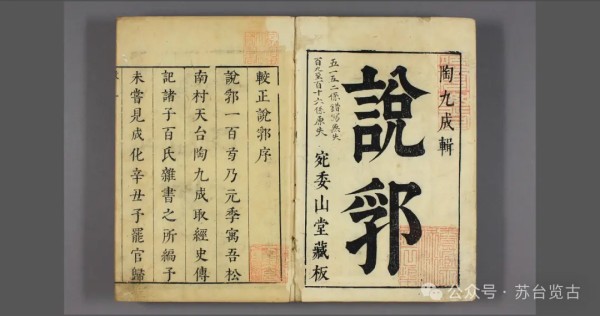 陶九成輯
說郛
百九至百十六係原失
宛委山堂藏板
較正說郛序
說郛一百乃元季寓吾松
南村天台陶九成取經史傳
記諸子百氏雜書之所編予
未嘗見成化辛丑予罷官歸
公众号 · 苏台览古